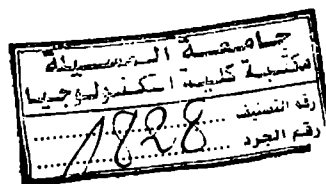 جامعة المسيلة
مكتبة كلية التكنولوجيا
رقم التصنيف
1828
رقم الجرد